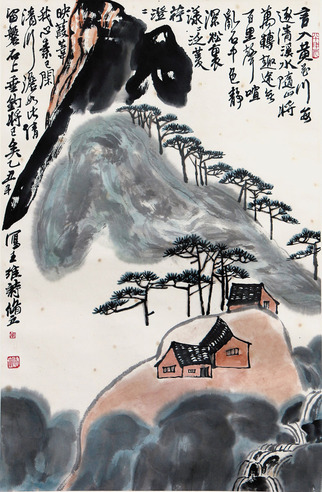 言入黄花川每
逐清溪水随山將
萬轉趣途無
百里聲喧
亂石中色靜
深松裏
漾漾泛菱
荇
澄澄
映葭葦
我心素已閑
清川澹如此請
留盤石上垂釣將已矣
寫王維詩